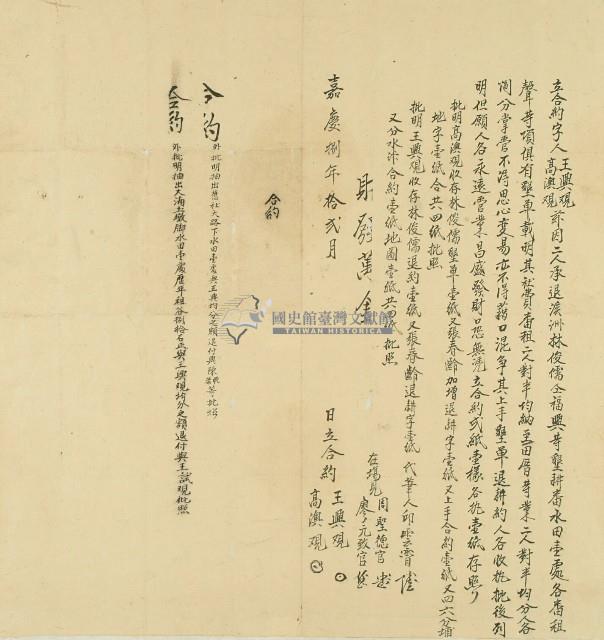 立合約字人王興觀
高澳觀
前因二人承退濱洲林俊儒仝福興等墾耕番水田壹處各番租
聲等項俱有墾單載明其就費番租二人對半均納至田厝等業二人對半均分人各
鬮分掌管不得思心变易亦不得藉口混爭其上手墾單退耕約人各收执批後列
明但願人各永遠營業昌盛發財口恐無憑立合約弍紙壹樣各执壹紙存照
批明高澳觀收存林俊儒墾單壹紙又張春齡加增退耕字壹紙又上手合約壹紙又四六分埔
地字壹紙合共四紙批照
批明王興觀收存林俊儒退約壹紙又張春齡退耕字壹紙
又分水汴合約壹紙地圖壹紙共四紙批照
代筆人邱雲霄
在場見
周聖德官
廖元致官
財發萬金
嘉慶捌年拾弍月 日立合約
王興觀
高澳觀
合約
合約
外批明抽出社大路下水田壹處與王興均分之額退付與陳
合約
外批明抽出大浦土墩脚水田壹處歷年租谷捌拾石正與王興現均分之額退付與王試現批照
國史館臺灣文獻館
TAIWAN HISTORICA